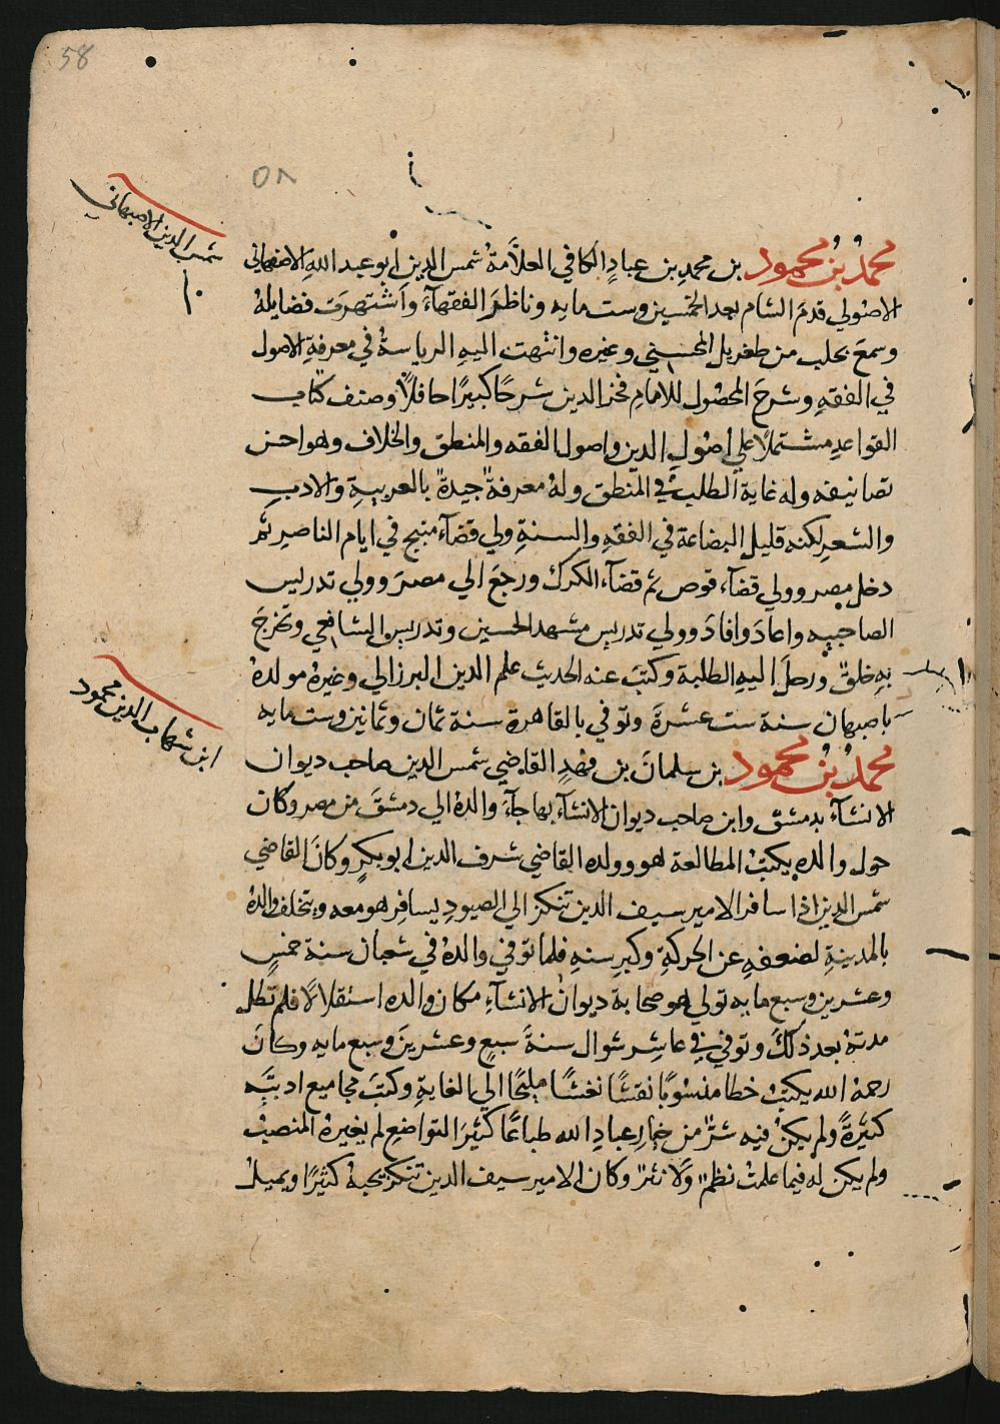 58
٥٨
شمس الدين الاصبهاني
محمد بن محمود بن محمد بن عباد الكافي العلامة شمس الدين ابو عبد الله الاصفهاني
الاصولي قدم الشام بعد الخمسين وست مايه وناظر الفقهآء واشتهرت فضايله
وسمع بحلب من طغريل المحسني وغيره وانتهت اليه الرياسة في معرفة الاصول
في الفقه وشرح المحصول للامام فخر الدين شرحًا كبيرًا حافلًا وصنف كتاب
القواعد مشتملًا علي اصول الدين واصول الفقه والمنطق والخلاف وهو احسن
تصانيفه وله غاية الطلب في المنطق وله معرفة جيدة بالعربية والادب
والشعر لكنه قليل البضاعة في الفقه والسنة ولي قضآء منبج في ايام الناصر ثم
دخل مصر وولي قضآء قوص ثم قضآء الكرك ورجع الي مصر وولي تدريس
الصاحبيه واعاد وافاد وولي تدريس مشهد الحسين وتدريس الشافعي وتخرج
به خلق ورحل اليه الطلبة وكتب عنه الحديث علم الدين البرزالي وغيره مولده
باصبهان سنة ست عشرة وتوفي بالقاهرة سنة ثمان وثمانين وست مايه
ابن شهاب الدين محمود
محمد بن محمود بن سلمان بن فهد القاضي شمس الدين صاحب ديوان
الانشآء بدمشق وابن صاحب ديوان الانشآء بها جآء والده الي دمشق من مصر وكان
حول والده يكتب المطالعة هو وولده القاضي شرف الدين ابو بكر وكان القاضي
شمس الدين اذا سافر الامير سيف الدين تنكز الي الصيود يسافر هو معه ويتخلف والده
بالمدينة لضعفه عن الحركة وكبر سنه فلما توفي والده في شعبان سنة خمس
وعشرين وسبع مايه تولي هو صحابة ديوان الانشآء مكان والده استقلالًا فلم تطل
مدته بعد ذلك وتوفي في عاشر شوال سنة سبع وعشرين وسبع مايه وكان
رحمه الله يكتب خطا منسوبًا نقشًا نغشًا مليحًا الي الغاية وكتب مجاميع ادبيه
كثيرة ولم يكن فيه شر من خيار عباد الله طباعًا كثير التواضع لم يغيره المنصب
ولم يكن له فيما علمت نظم ولا نثر وكان الامير سيف الدين تنكز يحبه كثيرًا ويميل